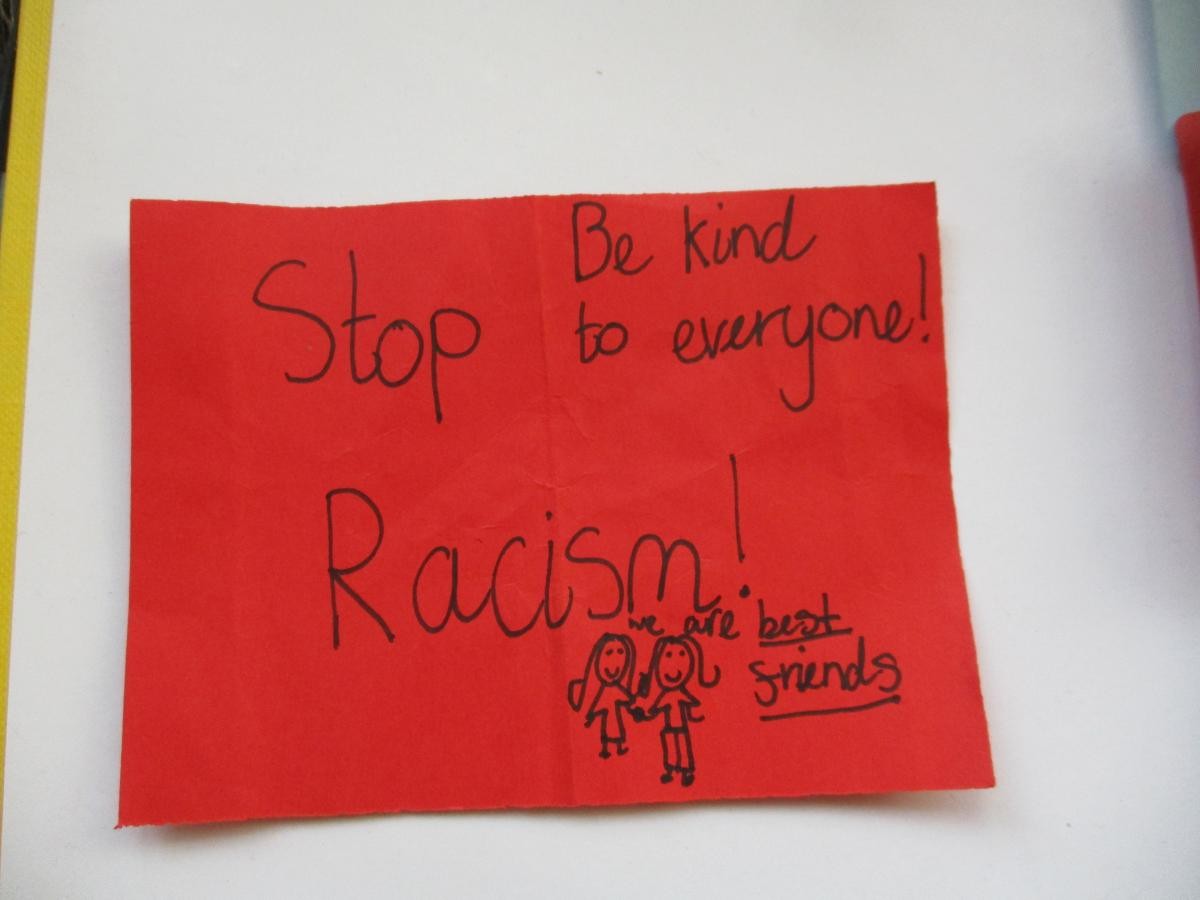 Stop
Be kind
to everyone!
Racism!
we are best
friends